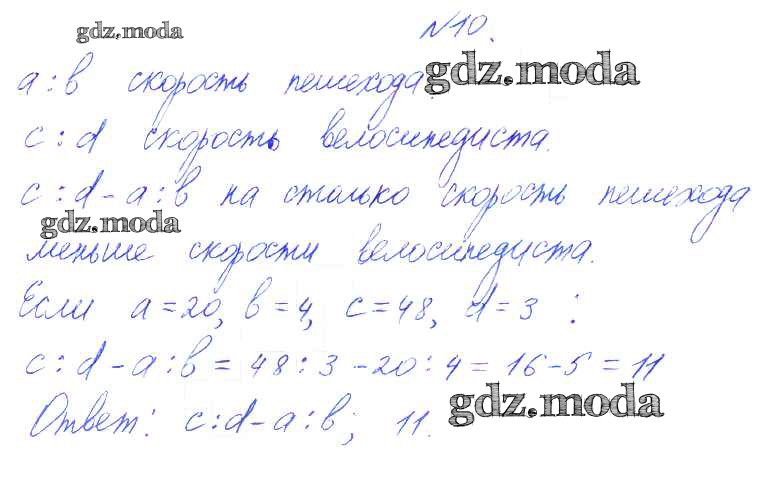 gdz.moda
№10.
a:b скорость пешехода. gdz.moda
c:d скорость велосипедиста.
c:d-a:b на столько скорость пешехода
gdz.moda
меньше скорости велосипедиста.
Если a=20, b=4, c=48, d=3 :
c:d-a:b=48:3-20:4=16-5=11
Ответ: c:d-a:b; 11. gdz.moda